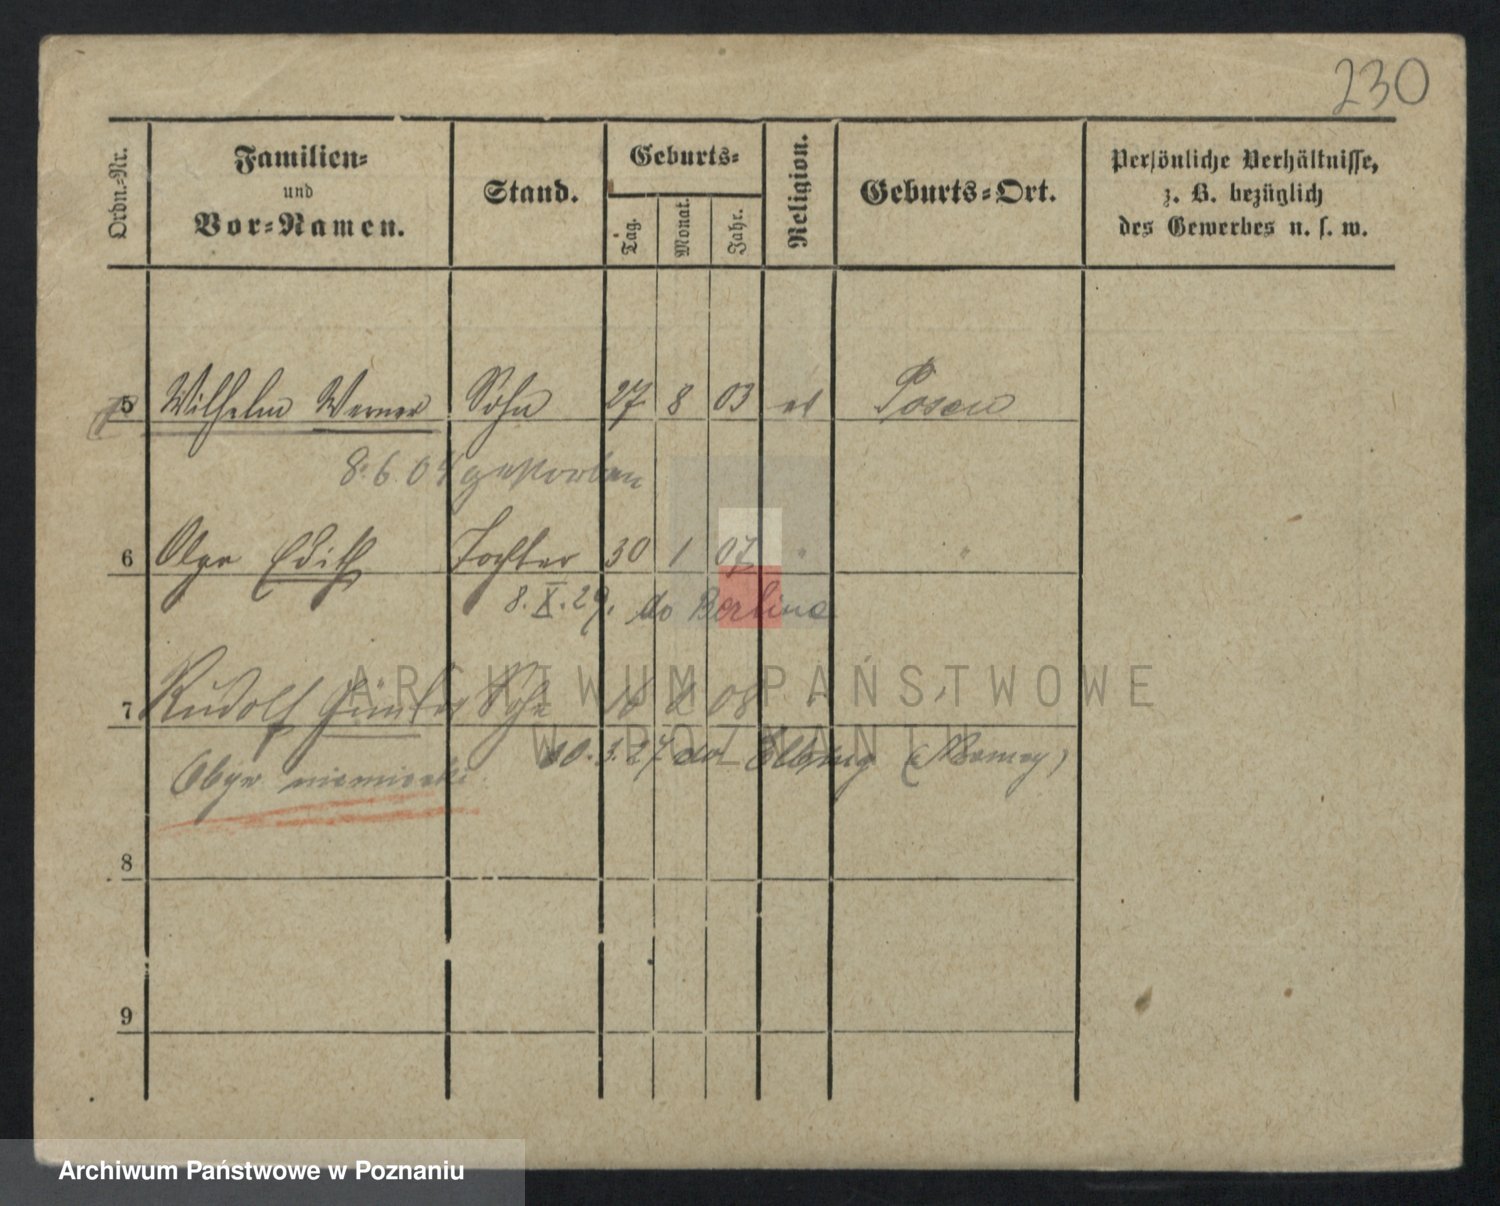 230
Ordn.-Nr.
Familien-
und
Vor-Namen.
Stand.
Geburts-
Tag.
Monat.
Jahr.
Religion.
Geburts-Ort.
Persönliche Verhältnisse,
z. B. bezüglich
des Gewerbes u. s. w.
5 Wilhelm Werner Sohn 27 8 03 Posen
8.6.04 gestorben
6 Olga Edith Tochter 30 1 07 " "
8.X.29. do Berlina
ARCHIWUM PAŃSTWOWE
7 Rudolf Günter Sohn 16 2 08
W POZNANIU
10.3.27 do Elbing (Niemcy)
Obyw. niemiecki
8
9
Archiwum Państwowe w Poznaniu